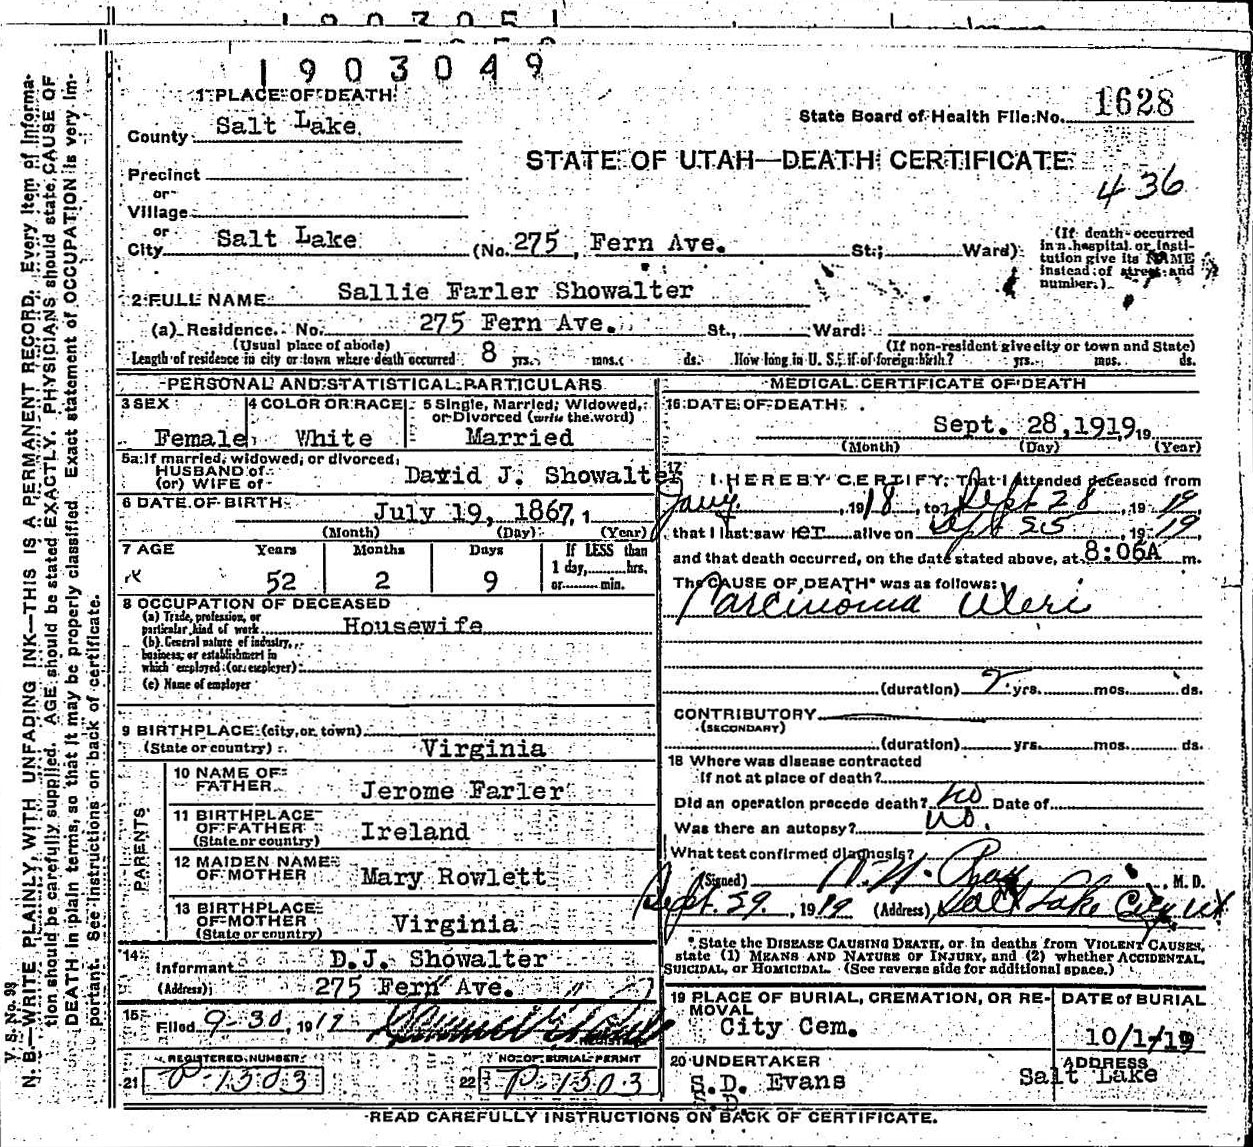 1903051
1903049
1628
State Board of Health File No.
1 PLACE OF DEATH
County Salt Lake
STATE OF UTAH—DEATH CERTIFICATE
436
Precinct
or
Village
or
City Salt Lake (No. 275, Fern Ave. St.; Ward)
(If death occurred in a hospital or institution give its NAME instead of street and number.)
2 FULL NAME Sallie Farler Showalter
(a) Residence. No. 275 Fern Ave. St., Ward.
(Usual place of abode) (If non-resident give city or town and State)
Length of residence in city or town where death occurred 8 yrs. mos. ds. How long in U. S., if of foreign birth? yrs. mos. ds.
PERSONAL AND STATISTICAL PARTICULARS
3 SEX
Female
4 COLOR OR RACE
White
5 Single, Married, Widowed, or Divorced (write the word)
Married
5a If married, widowed, or divorced,
HUSBAND of
(or) WIFE of David J. Showalter
6 DATE OF BIRTH
July 19, 1867, 1
(Month) (Day) (Year)
7 AGE Years Months Days If LESS than
1 day, hrs.
or min.
52 2 9
8 OCCUPATION OF DECEASED
(a) Trade, profession, or
particular kind of work Housewife
(b) General nature of industry,
business, or establishment in
which employed (or employer)
(c) Name of employer
9 BIRTHPLACE (city or town)
(State or country) Virginia
PARENTS
10 NAME OF
FATHER Jerome Farler
11 BIRTHPLACE
OF FATHER Ireland
(State or country)
12 MAIDEN NAME
OF MOTHER Mary Rowlett
13 BIRTHPLACE
OF MOTHER Virginia
(State or country)
14
Informant D.J. Showalter
(Address) 275 Fern Ave.
15
Filed 9-30, 1919
REGISTRAR
REGISTERED NUMBER
21 P-1503
NO. OF BURIAL PERMIT
22 P-1503
MEDICAL CERTIFICATE OF DEATH
16 DATE OF DEATH
Sept. 28, 1919, 19
(Month) (Day) (Year)
17
I HEREBY CERTIFY, That I attended deceased from
Jany. , 1918, to Sept 28, 1919
that I last saw her alive on Sept 25, 1919
and that death occurred, on the date stated above, at 8:06A m.
The CAUSE OF DEATH* was as follows:
Carcinoma Uteri
(duration) 2 yrs. mos. ds.
CONTRIBUTORY
(SECONDARY)
(duration) yrs. mos. ds.
18 Where was disease contracted
if not at place of death?
Did an operation precede death? No Date of
Was there an autopsy? No.
What test confirmed diagnosis?
(Signed) , M. D.
Sept. 29, 1919 (Address) Salt Lake City Ut
* State the DISEASE CAUSING DEATH, or in deaths from VIOLENT CAUSES,
state (1) MEANS AND NATURE OF INJURY, and (2) whether ACCIDENTAL,
SUICIDAL, or HOMICIDAL. (See reverse side for additional space.)
19 PLACE OF BURIAL, CREMATION, OR RE-
MOVAL
City Cem.
DATE of BURIAL
10/1/19
20 UNDERTAKER
S.D. Evans
ADDRESS
Salt Lake
READ CAREFULLY INSTRUCTIONS ON BACK OF CERTIFICATE.
V. S. No. 98
N. B.—WRITE PLAINLY, WITH UNFADING INK—THIS IS A PERMANENT RECORD. Every item of informa-
tion should be carefully supplied. AGE should be stated EXACTLY. PHYSICIANS should state CAUSE OF
DEATH in plain terms, so that it may be properly classified. Exact statement of OCCUPATION is very im-
portant. See instructions on back of certificate.